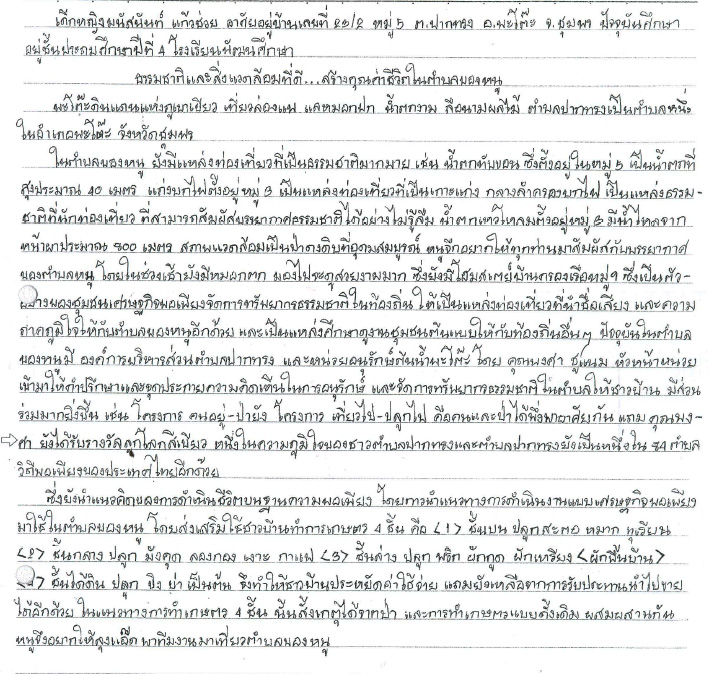 เด็กหญิงมนัสนันท์ แก้วช่วย อาศัยอยู่บ้านเลขที่ 22/2 หมู่ 5 ต.ปากทรง อ.พะโต๊ะ จ.ชุมพร ปัจจุบันศึกษา
อยู่ชั้นประถมศึกษาปีที่ 4 โรงเรียนพัฒนศึกษา
ธรรมชาติและสิ่งแวดล้อมที่ดี...สร้างคุณค่าชีวิตในตำบลของหนู
พะโต๊ะดินแดนแห่งภูเขาเขียว เที่ยวล่องแพ แลหมอกปก น้ำตกงาม ลือนามผลไม้ ตำบลปากทรงเป็นตำบลหนึ่ง
ในอำเภอพะโต๊ะ จังหวัดชุมพร
ในตำบลของหนู ยังมีแหล่งท่องเที่ยวที่เป็นธรรมชาติมากมาย เช่น น้ำตกทับขอน ซึ่งตั้งอยู่ในหมู่ 5 เป็นน้ำตกที่
สูงประมาณ 40 เมตร แก่งบกไฟตั้งอยู่หมู่ 3 เป็นแหล่งท่องเที่ยวที่เป็นเกาะแก่ง กลางลำคลองบกไฟ เป็นแหล่งธรรม-
ชาติที่นักท่องเที่ยว ที่สามารถสัมผัสบรรยากาศธรรมชาติได้อย่างไม่รู้ลืม น้ำตกเหวโหลมตั้งอยู่หมู่ มีน้ำไหลจาก
หน้าผาประมาณ 800 เมตร สภาพแวดล้อมเป็นป่าดงดิบที่อุดมสมบูรณ์ หนูจึงอยากให้ทุกท่านมาสัมผัสกับบรรยากาศ
ของตำบลหนู โดยในช่วงเช้ายังมีหมอกตก มองไประดูสวยงามมาก ซึ่งยังมีโฮมสเตย์บ้านคลองเรือหมู่ 9 ซึ่งเป็นตัว-
อย่างของชุมชนเศรษฐกิจพอเพียงจัดการทรัพยากรธรรมชาติในท้องถิ่น ให้เป็นแหล่งท่องเที่ยวที่นำชื่อเสียง และความ
ภาคภูมิใจให้กับตำบลของหนูอีกด้วย และเป็นแหล่งศึกษาดูงานชุมชนต้นแบบให้กับท้องถิ่นอื่นๆ ปัจจุบันในตำบล
ของหนูมี องค์การบริหารส่วนตำบลปากทรง และหน่วยอนุรักษ์ต้นน้ำพะโต๊ะ โดย คุณพงศา ชูแนม หัวหน้าหน่วย
เข้ามาให้คำปรึกษาและจุดประกายความคิดเห็นในการอนุรักษ์ และจัดการทรัพยากรธรรมชาติในตำบลให้ชาวบ้าน มีส่วน
ร่วมมากยิ่งขึ้น เช่น โครงการ คนอยู่-ป่ายัง โครงการ เที่ยวไป-ปลูกไป คือคนและป่าได้พึ่งพาอาศัยกัน แถม คุณพง-
ศา ยังได้รับรางวัลลูกโลกสีเขียว หนึ่งในความภูมิใจของชาวตำบลปากทรงและตำบลปากทรงยังเป็นหนึ่งใน 84 ตำบล
วิถีพอเพียงของประเทศไทยอีกด้วย
ซึ่งยังนำแนวคิดของการดำเนินชีวิตบนฐานความพอเพียง โดยการนำแนวทางการดำเนินงานแบบเศรษฐกิจพอเพียง
มาใช้ในตำบลของหนู โดยส่งเสริมให้ชาวบ้านทำการเกษตร 4 ชั้น คือ <1> ชั้นบน ปลูกสะตอ หมาก ทุเรียน
<2> ชั้นกลาง ปลูก มังคุด ลองกอง เงาะ กาแฟ <3> ชั้นล่าง ปลูก พริก ผักกูด ผักเหรียง <ผักพื้นบ้าน>
<4> ชั้นใต้ดิน ปลูก ขิง ข่า เป็นต้น จึงทำให้ชาวบ้านประหยัดค่าใช้จ่าย แถมยังเหลือจากการรับประทานนำไปขาย
ได้อีกด้วย ในแนวทางการทำเกษตร 4 ชั้น นั้นสังเกตุได้จากป่า และการทำเกษตรแบบดั้งเดิม ผสมผสานกัน
หนูจึงอยากให้ลุงแอ๊ด พาทีมงานมาเที่ยวตำบลของหนู